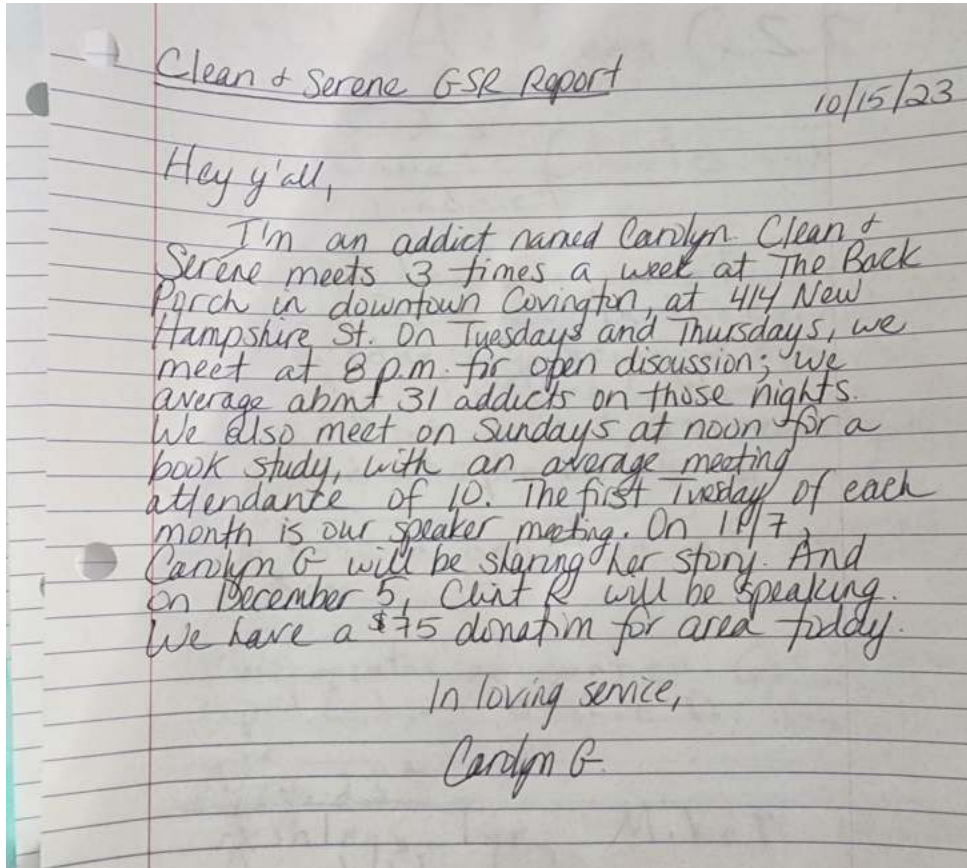 Clean & Serene GSR Report
10/15/23
Hey y'all,
I'm an addict named Carolyn. Clean &
Serene meets 3 times a week at The Back
Porch in downtown Covington, at 414 New
Hampshire St. On Tuesdays and Thursdays, we
meet at 8 p.m. for open discussion; we
average about 31 addicts on those nights.
We also meet on Sundays at noon for a
book study, with an average meeting
attendance of 10. The first Tuesday of each
month is our speaker meeting. On 11/7,
Carolyn G will be sharing her story. And
on December 5, Clint R will be speaking.
We have a $75 donation for area today.
In loving service,
Carolyn G.